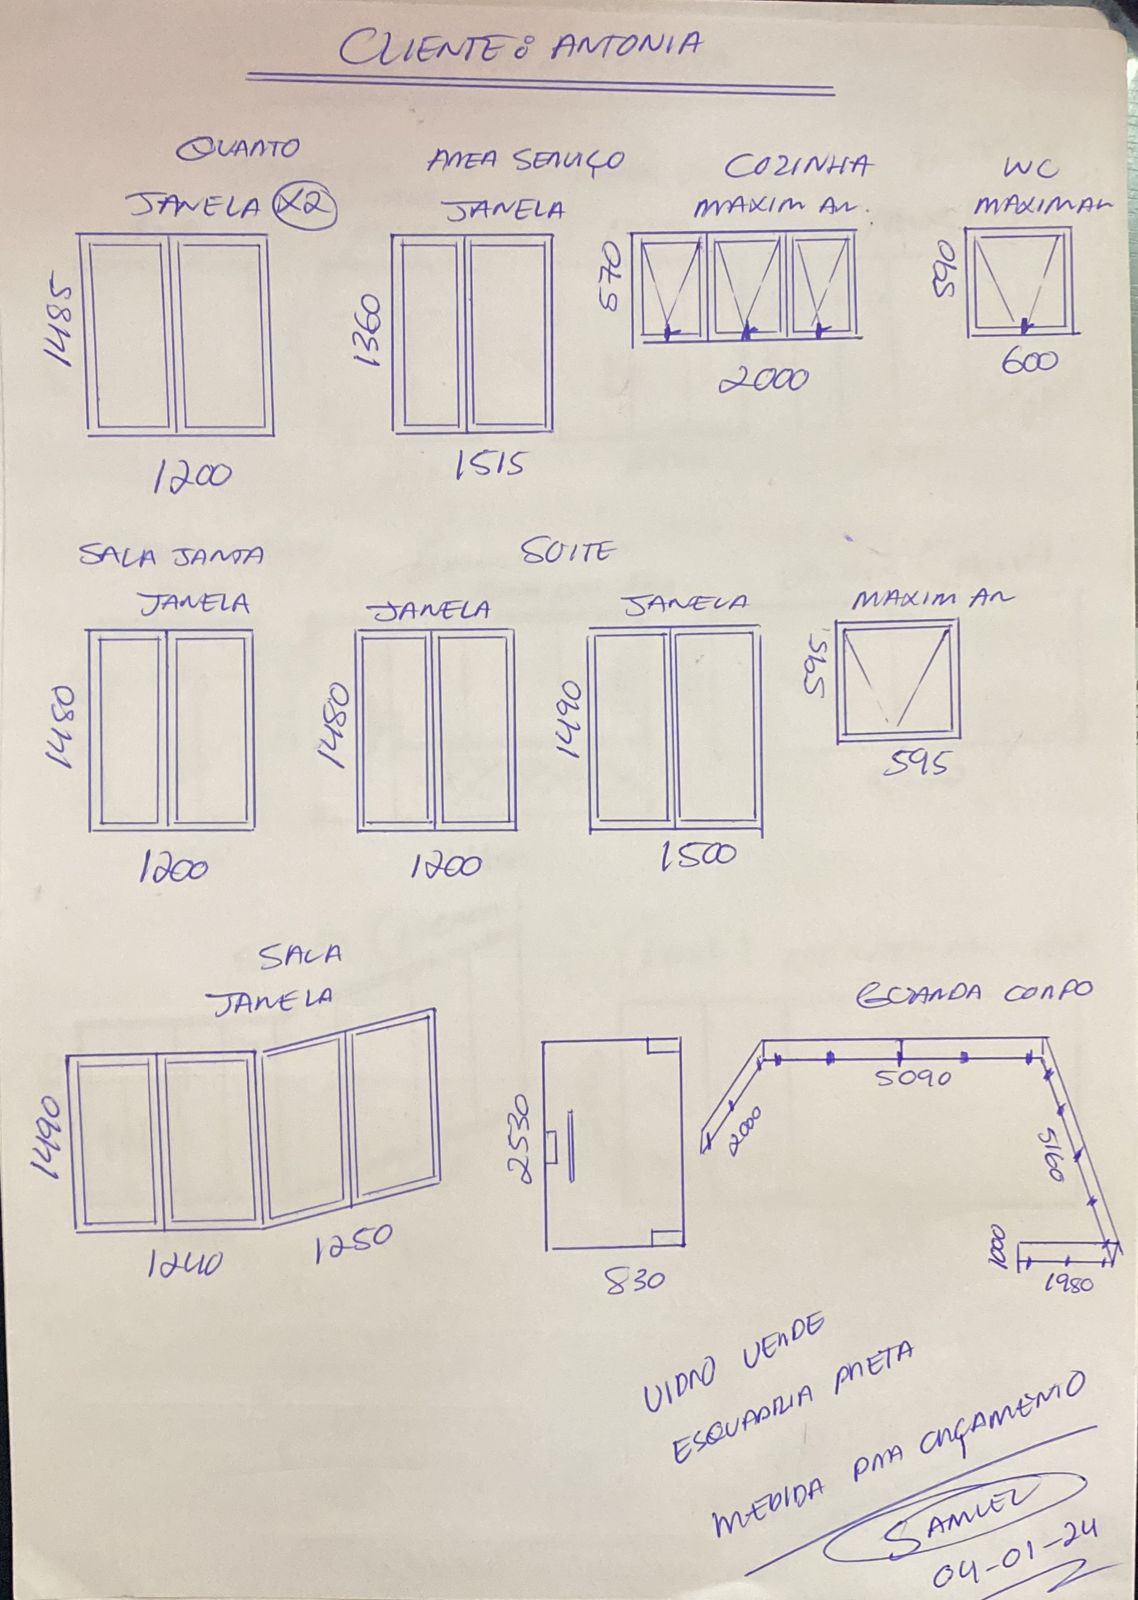 CLIENTE: ANTONIA
QUARTO
JANELA X2
1485
1200
AREA SERVIÇO
JANELA
1360
1515
COZINHA
MAXIM AR.
570
2000
WC
MAXIMAR
590
600
SALA JANTA
JANELA
1480
1200
SUITE
JANELA
1480
1200
JANELA
1490
1500
MAXIM AR
595
595
SALA
JANELA
1490
1240
1250
2530
830
GUARDA CORPO
2000
5090
5190
1000
1980
VIDRO VERDE
ESQUADRIA PRETA
MEDIDA PRA ORÇAMENTO
SAMUEL
04-01-24